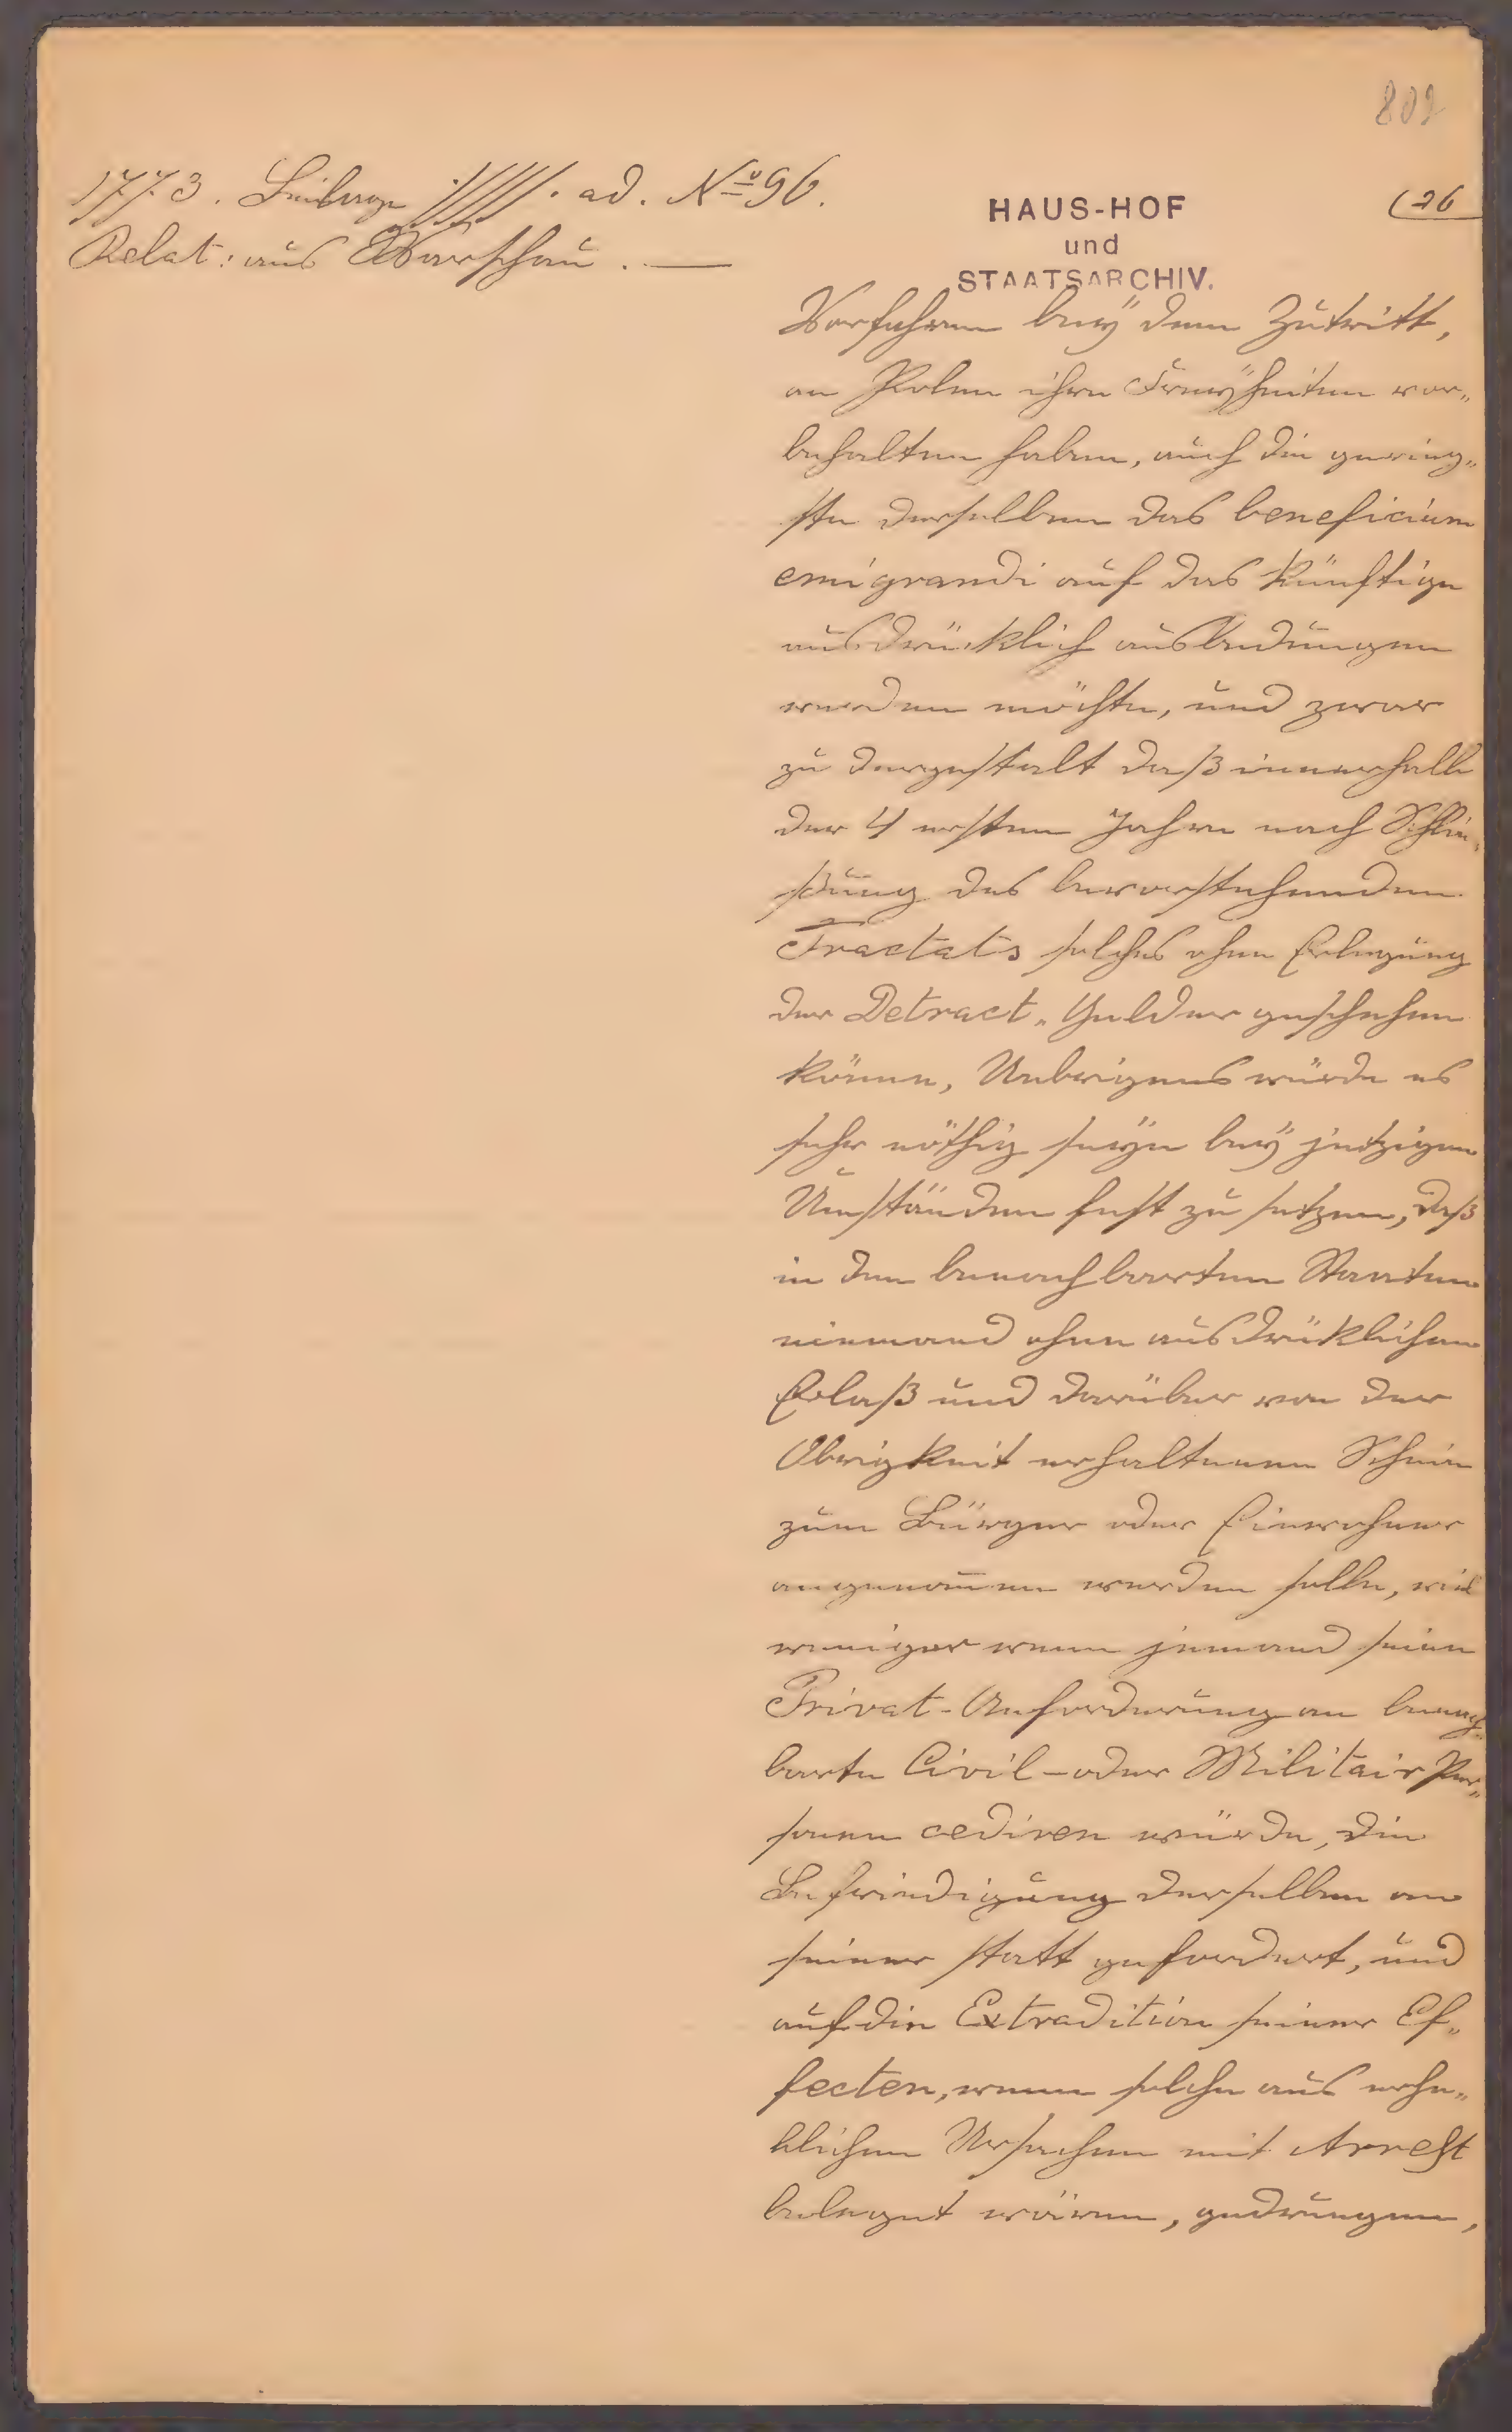 802
1773. Beilage ////. ad. No 96.
Relat: aus Warschau. —
HAUS-HOF
und
STAATSARCHIV.
(26
Vorfahren beÿ dem Zutritt,
an Polen ihre Freÿheiten vor„
behalten haben, auch die gering„
ste derselben das beneficium
emigrandi auf das künftige
ausdrücklich ausbedungen
werden möchte, und zwar
zu dergestalt daß innerhalb
der 4 ersten Jahre nach Schlie„
ßung des bevorstehenden
Tractats solches ohne Erlegung
der Detract„Gelder geschehen
könne, Uebrigens würde es
sehr nöthig seÿn beÿ jetzigen
Umständen fest zu setzen, daß
in den benachbarten Staaten
niemand ohne ausdrüklichen
Erlaß und darüber von der
Obrigkeit erhaltenen Schein
zum Bürger oder Einwohner
angenom̅en werden solle, viel
weniger wenn jemand seine
Privat-Anforderung an benach„
barte Civil-oder Militair Per„
sonen cediren würde, die
Befriedigung derselben an
seiner statt gefordert, und
auf die Extradition seiner Ef„
fecten, wenn solche aus erhe„
blichen Ursachen mit Arrest
beleget wären, gedrungen,